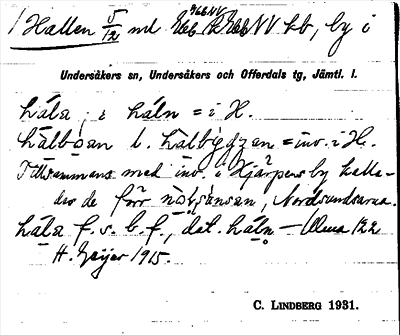 Hallen 5/12 ml. kb, by i
Undersåkers sn, Undersåkers och Offerdals tg, Jämtl. l.
hála, i háln = i H.
hálbóan l. hálbyggan = inv. i H.
Tillsammans med inv. i Hjärpens by kalla-
des de förr Nordsundsarna.
hála f. s. b. f., dat. háln — Alma 122
H. Geijer 1915.
C. LINDBERG 1931.